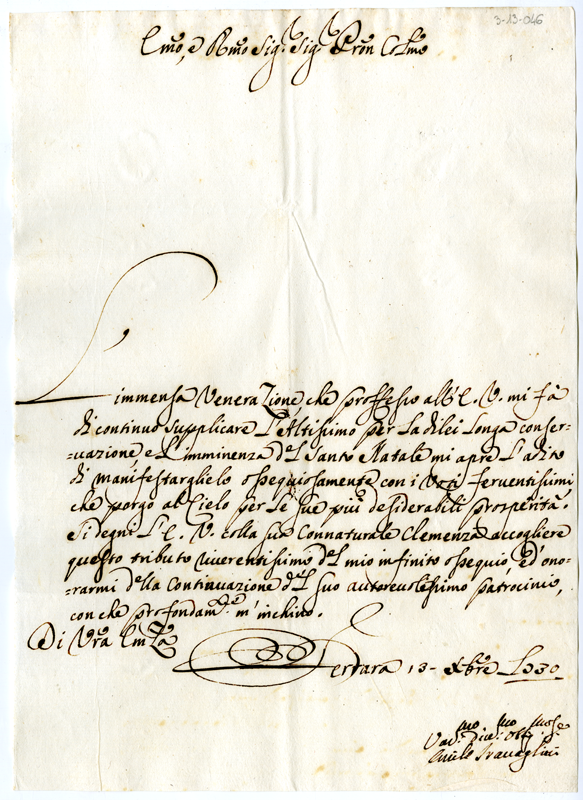 3-13-046
Emo, e Rmo Sig.r Sig.r Pron Colmo
L'immensa Venerazione, che professo all'E. V. mi fà
di continuo supplicare L'Altissimo per La di lei Longa conser-
-uazione e L'imminenza del Santo Natale mi apre L'adito
di manifestarglielo ossequiosamente con i Voti feruentissimi
che porgo al Cielo per Le sue più desiderabili prosperità.
Si degni L'E. V. colla sua Connaturale Clemenza accogliere
questo tributo riuerentissimo del mio infinito ossequio, e d'ono-
-rarmi della Continuazione del suo autoreuolissimo patrocinio,
con che profondam.te m'inchino.
Di Vra Emza
Ferrara 13 - Xbre 1730
mo mo mo Se
diu: obb: